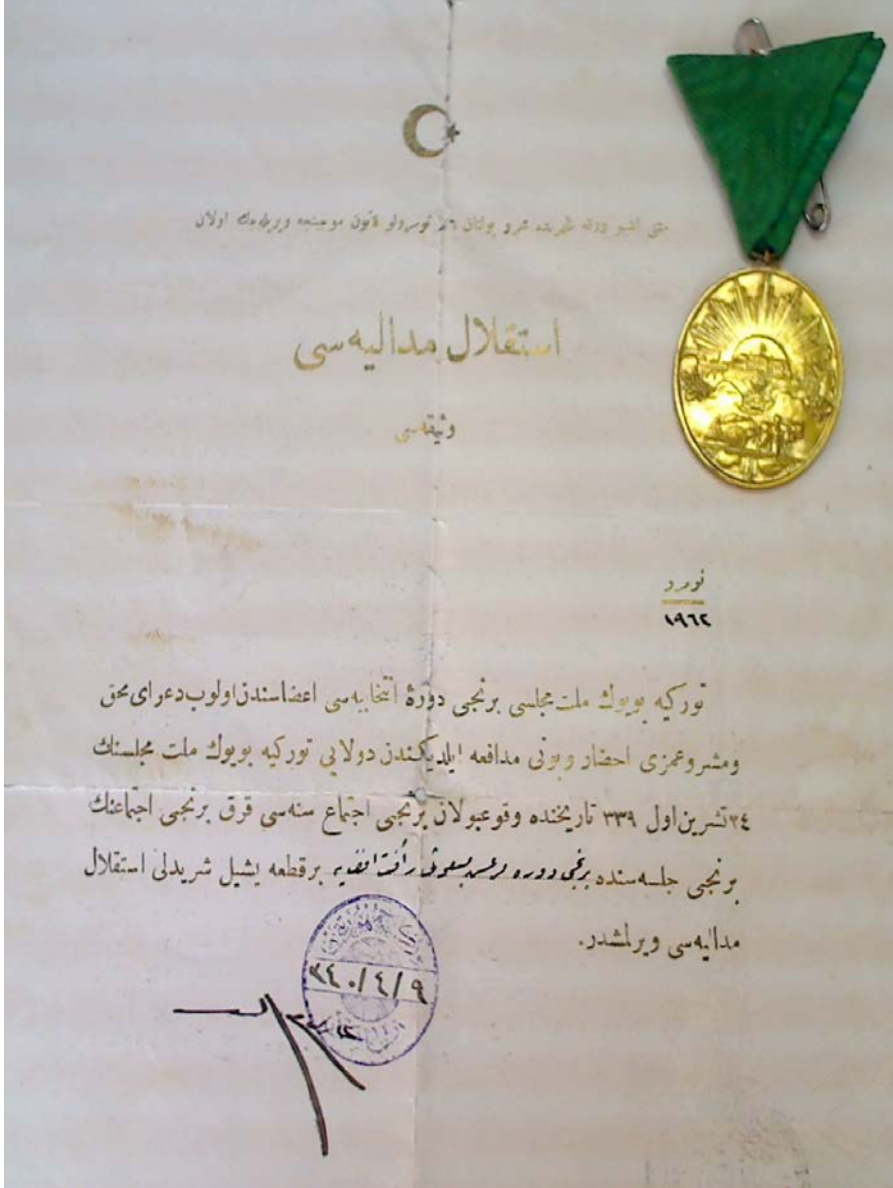 متنی اشبو ورقه ظهرنده محرر بولنان ٦٦ نومرولو قانون موجبنجه ویریله‌جك اولان
استقلال مدالیه‌سی
وثیقه‌سی
نومرو
١٩٦٢
توركیه بویوك ملت مجلسی برنجی دورۀ انتخابیه‌سی اعضاسندن اولوب دعوای محق
ومشروعمزی احضار وبونی مدافعه ایلدیكندن دولایی توركیه بویوك ملت مجلسنك
٢٤ تشرین اول ٣٣٩ تاریخنده وقوعبولان برنجی اجتماع سنه‌سی قرق برنجی اجتماعنك
برنجی جلسه‌سنده برنجی دوره مبعوثی رأفت افندی‌یه برقطعه یشیل شریدلی استقلال
مدالیه‌سی ویرلمشدر.
٣٤٠/٤/٩